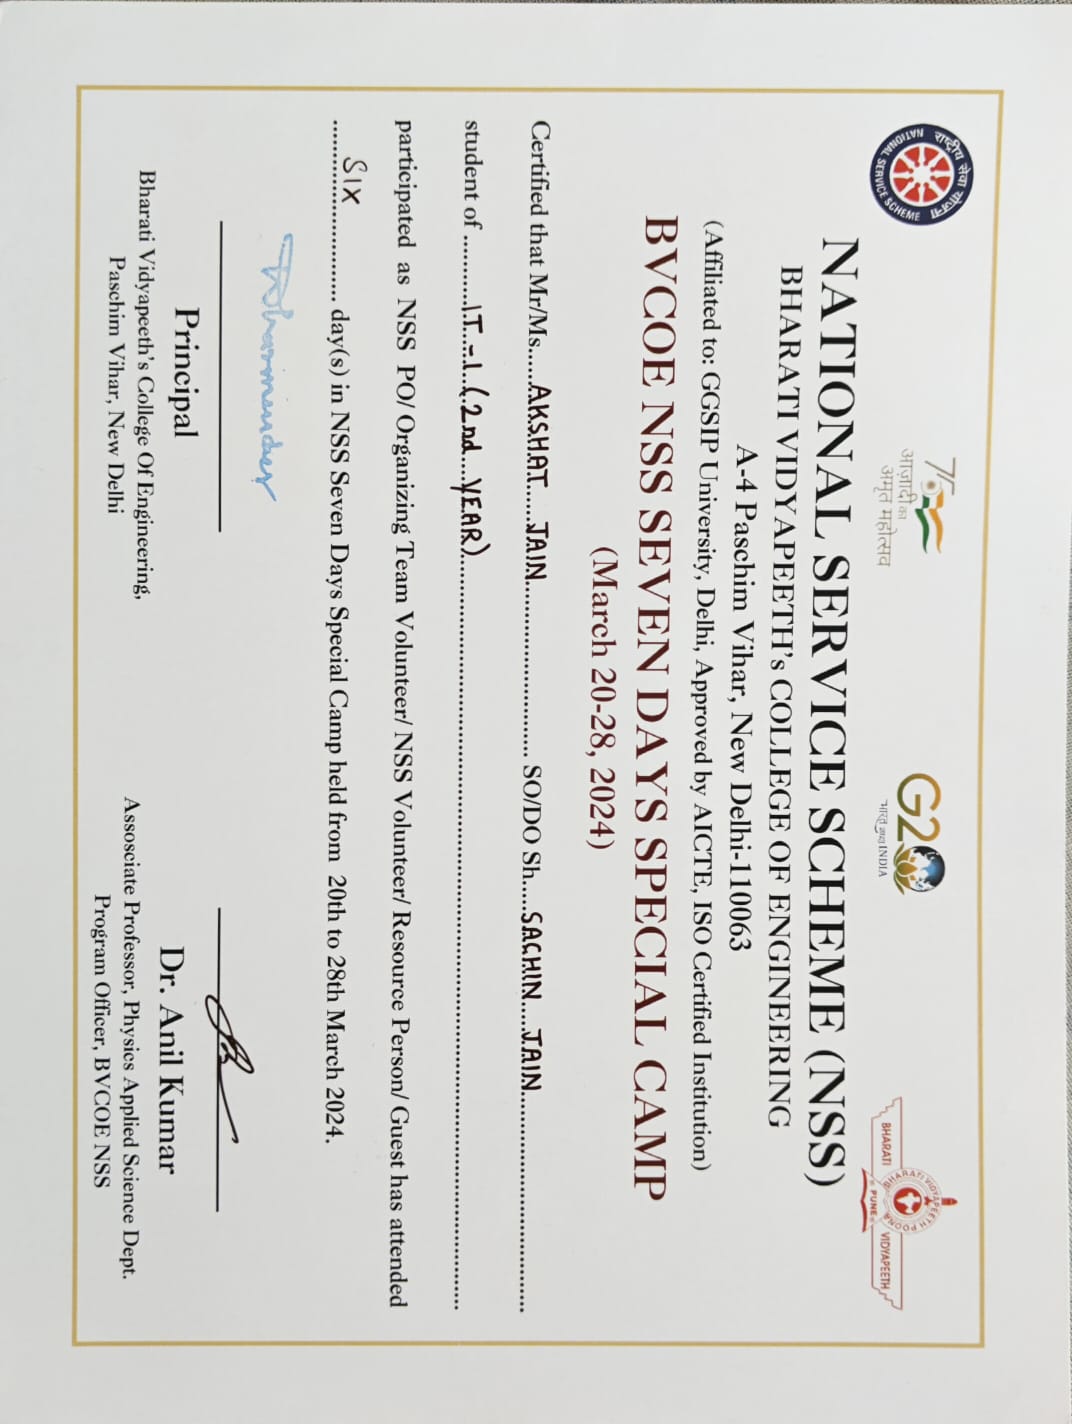 राष्ट्रीय सेवा योजना
NATIONAL SERVICE SCHEME
75
आज़ादी का
अमृत महोत्सव
G20
भारत 2023 INDIA
BHARATI VIDYAPEETH POONA
BHARATI VIDYAPEETH
PUNE
NATIONAL SERVICE SCHEME (NSS)
BHARATI VIDYAPEETH's COLLEGE OF ENGINEERING
A-4 Paschim Vihar, New Delhi-110063
(Affiliated to: GGSIP University, Delhi, Approved by AICTE, ISO Certified Institution)
BVCOE NSS SEVEN DAYS SPECIAL CAMP
(March 20-28, 2024)
Certified that Mr/Ms.....AKSHAT JAIN.......... SO/DO Sh.....SACHIN JAIN..........
student of ..........IT-1 (2nd YEAR)..........
participated as NSS PO/ Organizing Team Volunteer/ NSS Volunteer/ Resource Person/ Guest has attended
SIX day(s) in NSS Seven Days Special Camp held from 20th to 28th March 2024.
Dharmender
Principal
Bharati Vidyapeeth's College Of Engineering,
Paschim Vihar, New Delhi
Dr. Anil Kumar
Assosciate Professor, Physics Applied Science Dept.
Program Officer, BVCOE NSS